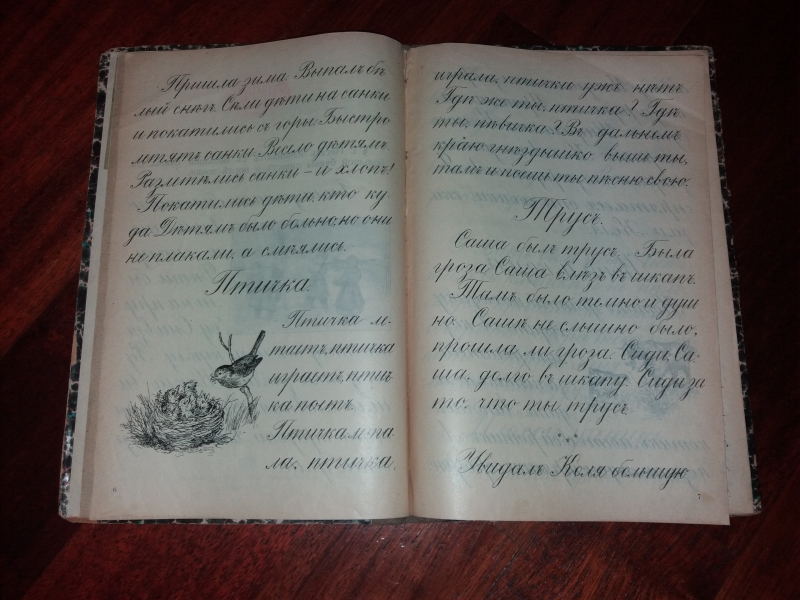 Пришла зима. Выпалъ бѣ
лый снѣгъ. Сѣли дѣти на санки
и покатились съ горы. Быстро
летятъ санки. Весело дѣтямъ.
Разлетѣлись санки – и хлопъ!
Покатились дѣти, кто ку
да. Дѣтямъ было больно, но они
не плакали, а смѣялись.
Птичка.
Птичка ле-
таетъ, птичка
играетъ, птич
ка поетъ.
Птичка лета-
ла, птичка
6
играла, птички ужъ нѣтъ.
Гдѣ же ты, птичка? Гдѣ
ты, пѣвичка? Въ дальнемъ
краю гнѣздышко вьешь ты,
тамъ и поешь ты пѣсню свою.
Трусъ.
Саша былъ трусъ. Была
гроза. Саша влѣзъ въ шкапъ.
Тамъ было темно и душ
но. Сашѣ не слышно было,
прошла ли гроза. Сиди, Са-
ша, долго въ шкапу. Сиди за
то, что ты трусъ.
Увидалъ Коля большую
7